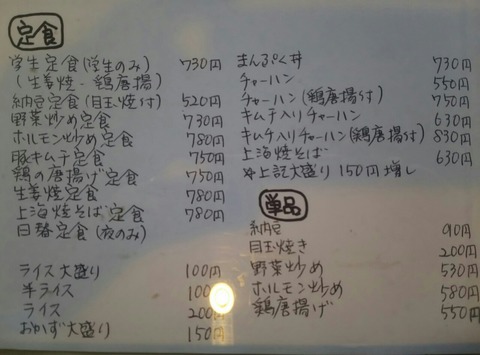 定食
学生定食(学生のみ) 730円
(生姜焼・鶏唐揚)
納豆定食(目玉焼付) 520円
野菜炒め定食 730円
ホルモン炒め定食 780円
豚キムチ定食 750円
鶏の唐揚げ定食 750円
生姜焼定食 780円
上海焼そば定食 780円
日替定食(夜のみ)
ライス大盛り 100円
半ライス 100円
ライス 200円
おかず大盛り 150円
まんぷく丼 730円
チャーハン 550円
チャーハン(鶏唐揚付) 750円
キムチ入りチャーハン 630円
キムチ入りチャーハン(鶏唐揚付) 830円
上海焼そば 630円
※上記大盛り150円増し
単品
納豆 90円
目玉焼き 200円
野菜炒め 530円
ホルモン炒め 580円
鶏唐揚げ 550円